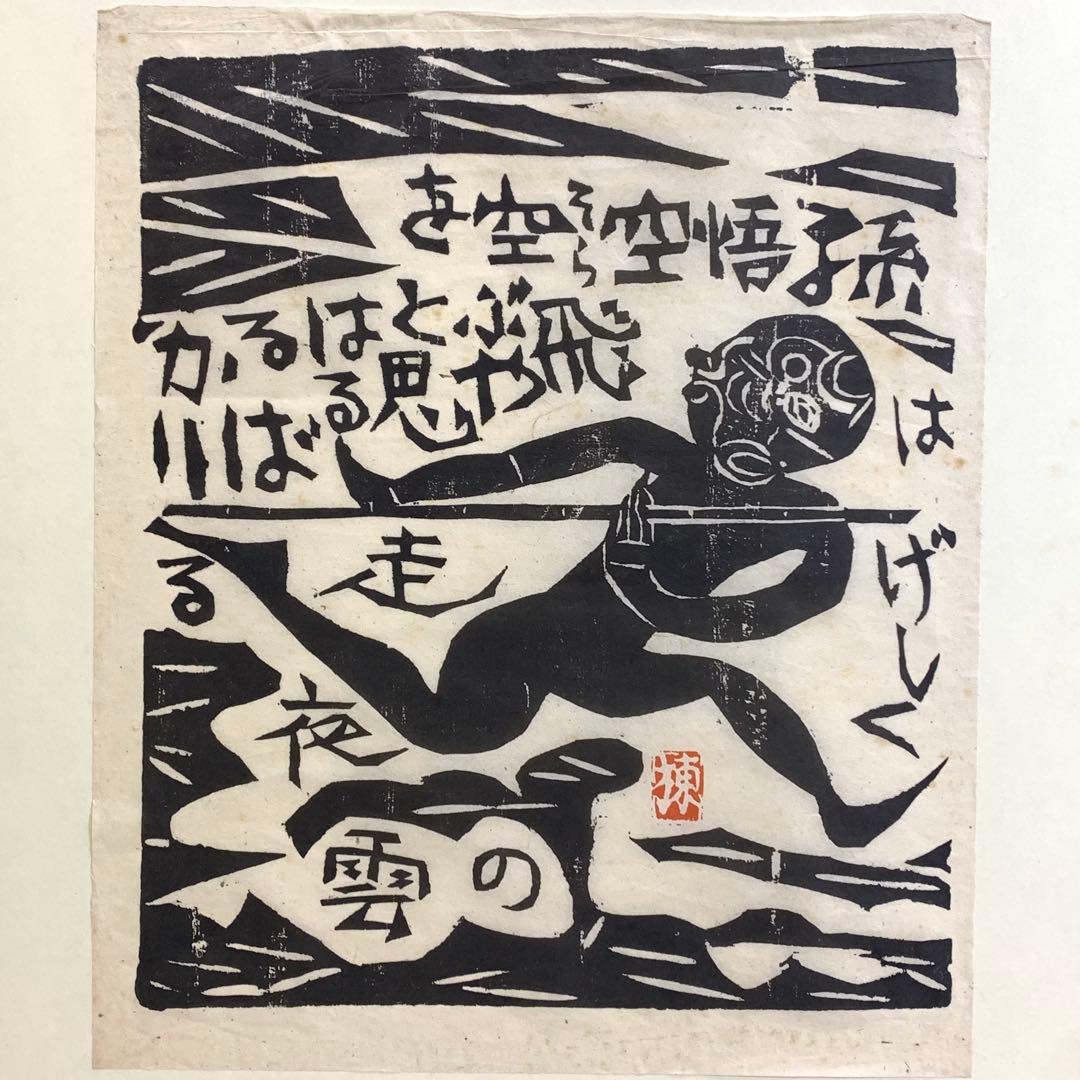 孫悟空空を
そら
飛ぶや
と思
はる
るば
かり
はげしく
走る
夜の雲
棟